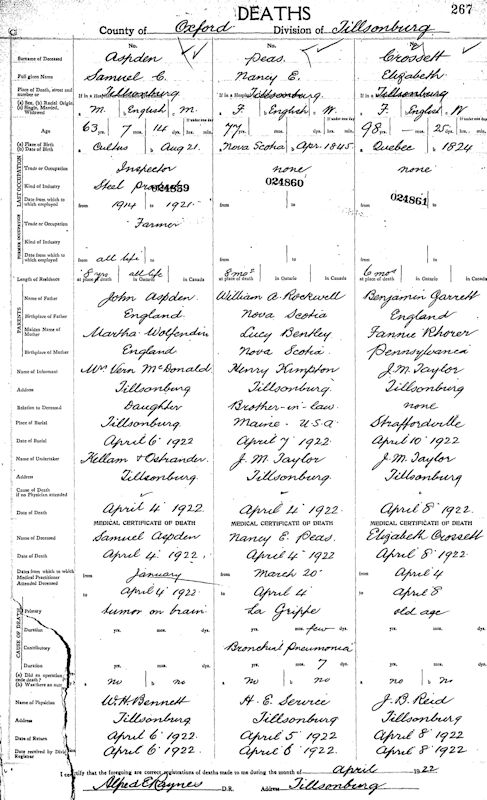 DEATHS 267
County of Oxford Division of Tillsonburg
No. No. No.
Surname of Deceased Aspden Peas. Crossett
Full given Name Samuel C. Nancy E. Elizabeth
Place of Death, street and number or If in a Hospital Tillsonburg If in a Hospital Tillsonburg If in a Hospital Tillsonburg
(a) Sex. (b) Racial Origin. (c) Single, Married, Widowed M. English M. F. English W. F. English W
If under one day If under one day If under one day
Age 63 yrs. 7 mos. 14 dys. hrs. min. 77 yrs. mos. dys. hrs. min. 98 yrs. mos. 25 dys. hrs. min.
(a) Place of Birth (b) Date of Birth Cultus Aug 21. Nova Scotia Apr. 1845. Quebec 1824
LAST OCCUPATION
Trade or Occupation Inspector none none
Kind of Industry Steel 024859 024860 024861
Date from which to which employed from 1914 to 1921 from to from to
FORMER OCCUPATION
Trade or Occupation Farmer
Kind of Industry
Date from which to which employed from all life to from to from to
Length of Residence 8 yrs at place of death all life in Ontario in Canada 8 mos at place of death in Ontario in Canada 6 mos at place of death in Ontario in Canada
PARENTS
Name of Father John Aspden William A Rockwell Benjamin Garrett
Birthplace of Father England Nova Scotia England
Maiden Name of Mother Martha Wolfendin Lucy Bentley Fannie Rhorer
Birthplace of Mother England Nova Scotia. Pennsylvania
Name of Informant Mrs Vern McDonald Henry Kimpton J. M. Taylor
Address Tillsonburg Tillsonburg. Tillsonburg
Relation to Deceased Daughter Brother-in-law. none
Place of Burial Tillsonburg Maine - U.S.A. Straffordville
Date of Burial April 6 1922 April 7 1922 April 10 1922
Name of Undertaker Kellam & Ostrander J. M. Taylor J. M. Taylor
Address Tillsonburg. Tillsonburg. Tillsonburg
Cause of Death if no Physician attended
Date of Death April 4 1922. April 4 1922. April 8 1922
MEDICAL CERTIFICATE OF DEATH MEDICAL CERTIFICATE OF DEATH MEDICAL CERTIFICATE OF DEATH
Name of Deceased Samuel Aspden Nancy E. Peas. Elizabeth Crossett
Date of Death April 4 1922. April 4 1922 April 8 1922
Dates from which to which Medical Practitioner Attended Deceased from January from March 20 from April 4
to April 4 1922 to April 4 to April 8
CAUSE OF DEATH
Primary tumor on brain La Grippe old age
Duration yrs. mos. dys. yrs. mos. few dys. yrs. mos. dys.
Contributory Bronchial Pneumonia
Duration yrs. mos. dys. yrs. mos. 7 dys. yrs. mos. dys.
(a) Did an operation death? (b) Was there an a no b no a no b no a no b no
Name of Physician W. H. Bennett H. E. Service J. B. Reid
Address Tillsonburg Tillsonburg Tillsonburg
Date of Return April 6 1922. April 5 1922 April 8 1922
Date received by Division Registrar April 6 1922. April 6 1922 April 8 1922
I certify that the foregoing are correct registrations of deaths made to me during the month of April 1922
Alfred E. Raynes D.R. Address Tillsonburg